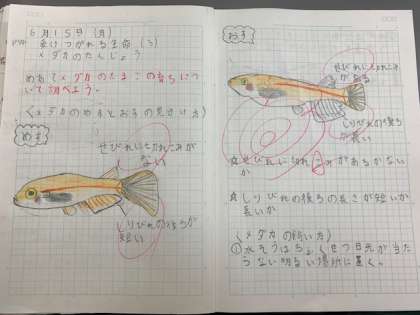 6月15日(月)
受けつがれる生命(3)
メダカのたんじょう
めあて メダカのたまごの育ちについて
調べよう。
<メダカのめすとおすの見分け方>
めす
せびれに切れこみが
ない
しりびれの後ろが
短い
おす
せびれに切れこみ
がある
しりびれの後ろ
が長い
☆せびれに切れこみがあるかない
か
☆しりびれの後ろの長さが短いか
長いか
<メダカの飼い方>
①水そうはちょくせつ日光が当た
らない明るい場所に置く。